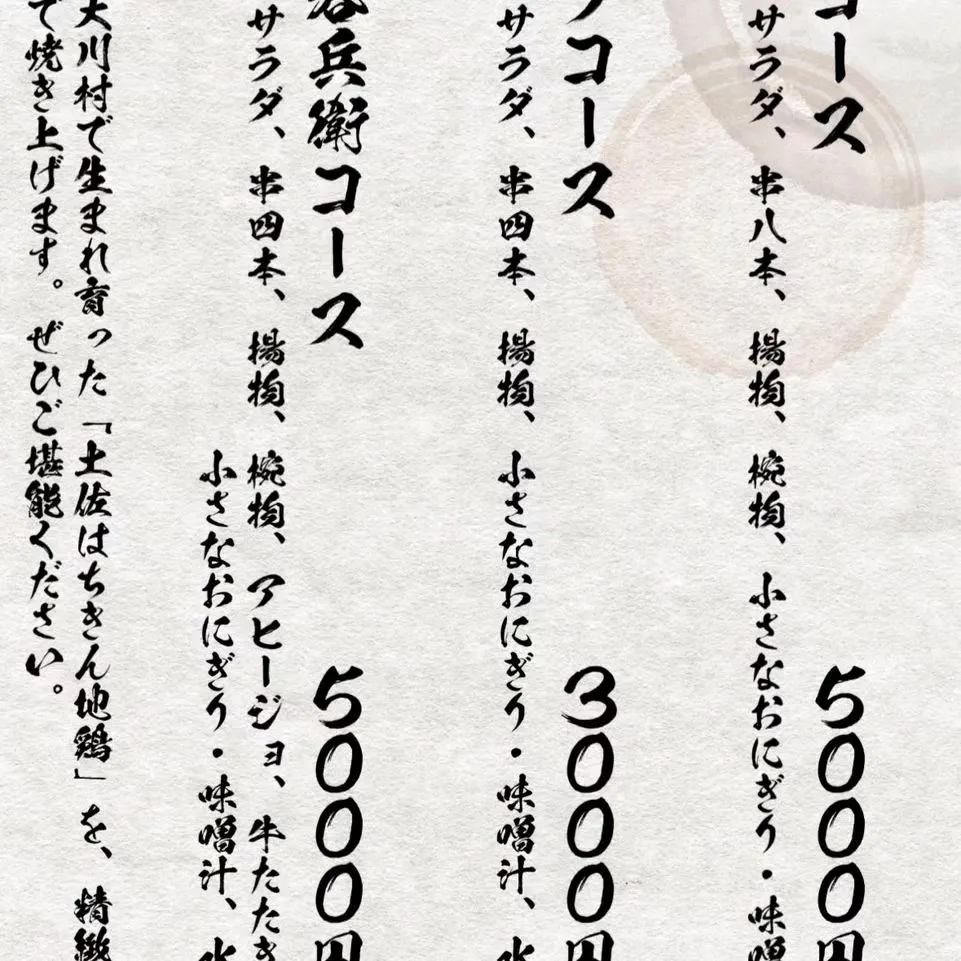 コース 5000円
サラダ、串八本、揚物、椀物、小さなおにぎり・味噌
コース 3000円
サラダ、串四本、揚物、
小さなおにぎり・味噌汁、水
兵衛コース 5000円
サラダ、串四本、揚物、椀物、アヒージョ、牛たたき
小さなおにぎり・味噌汁、水
大川村で生まれ育った「土佐はちきん地鶏」を、精緻
で焼き上げます。ぜひご堪能ください。